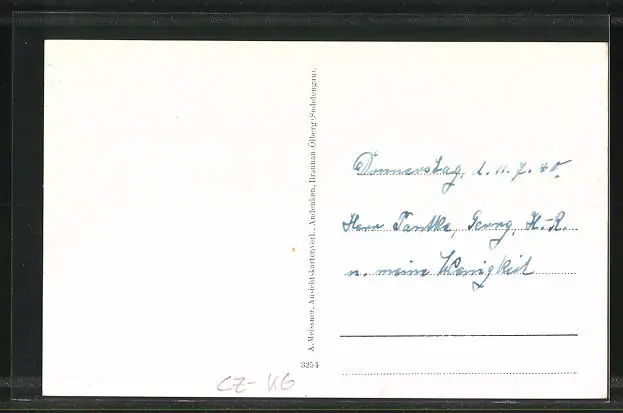 A. Meissner, Ansichtskartenverl., Andenken, Braunau-Ölberg (Sudetengau).
3254
Donnerstag, d. 11. 7. 40.
Herr Pantke, Georg, H.-R.
u. meine Wenigkeit
CZ-KG